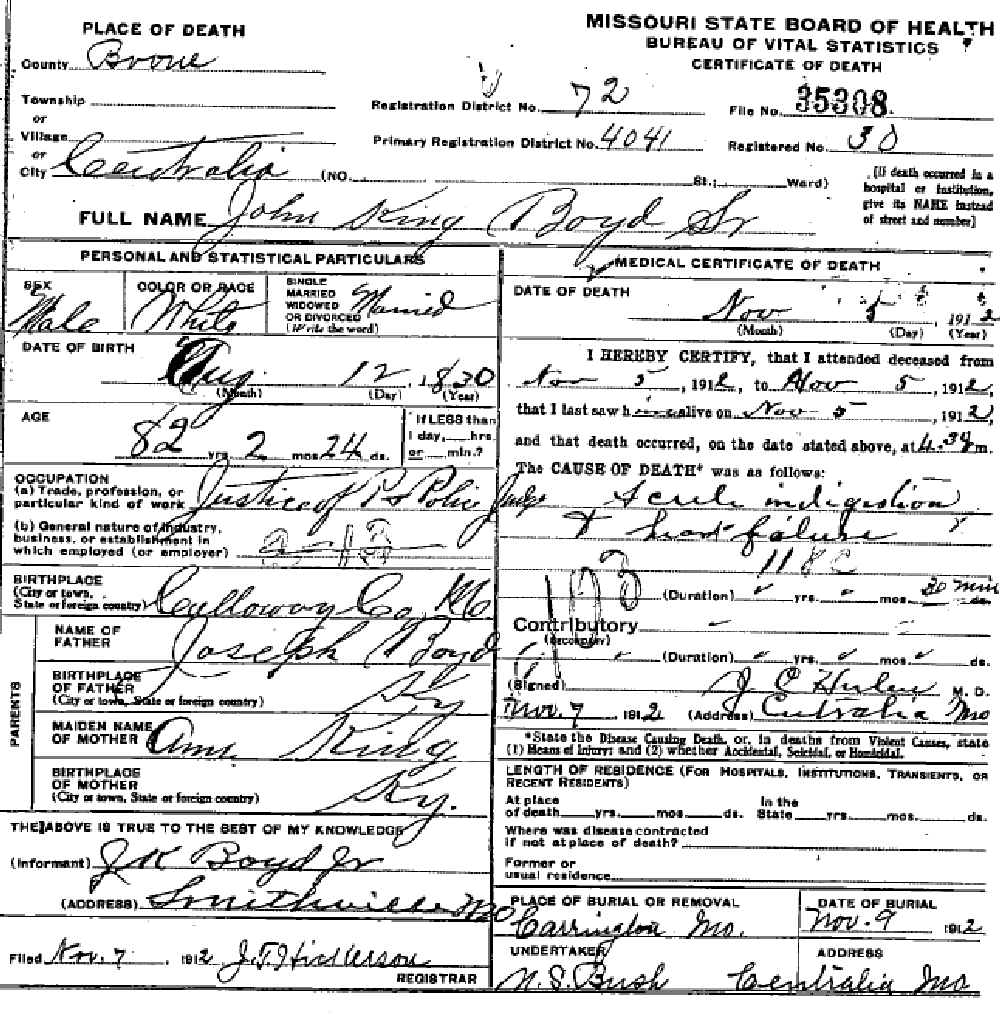 MISSOURI STATE BOARD OF HEALTH
BUREAU OF VITAL STATISTICS
CERTIFICATE OF DEATH
PLACE OF DEATH
County Boone
Township
or
Village
or
City Centralia (NO. St.; Ward)
Registration District No. 72
File No. 35308
Primary Registration District No. 4041
Registered No. 30
[If death occurred in a
hospital or institution,
give its NAME instead
of street and number]
FULL NAME John King Boyd Sr
PERSONAL AND STATISTICAL PARTICULARS
SEX
Male
COLOR OR RACE
White
SINGLE
MARRIED
WIDOWED
OR DIVORCED
(Write the word)
Married
DATE OF BIRTH
Aug 12, 1830
(Month) (Day) (Year)
AGE
82 yrs. 2 mos. 24 ds.
If LESS than
1 day, hrs.
or min.?
OCCUPATION
(a) Trade, profession, or
particular kind of work Justice of P & Police Judge
(b) General nature of industry,
business, or establishment in
which employed (or employer)
BIRTHPLACE
(City or town,
State or foreign country) Calloway Co. Mo
PARENTS
NAME OF
FATHER Joseph Boyd
BIRTHPLACE
OF FATHER
(City or town, State or foreign country) Ky
MAIDEN NAME
OF MOTHER Ann King
BIRTHPLACE
OF MOTHER
(City or town, State or foreign country) Ky.
THE ABOVE IS TRUE TO THE BEST OF MY KNOWLEDGE
(Informant) J K Boyd Jr
(ADDRESS) Smithville Mo
Filed Nov. 7 1912 J.T. Hickerson
REGISTRAR
MEDICAL CERTIFICATE OF DEATH
DATE OF DEATH
Nov 5 1912
(Month) (Day) (Year)
I HEREBY CERTIFY, that I attended deceased from
Nov 5, 1912, to Nov 5, 1912,
that I last saw h alive on Nov 5, 1912,
and that death occurred, on the date stated above, at 4.30 m.
The CAUSE OF DEATH* was as follows:
Acute indigestion
& heart failure
118C
103
(Duration) yrs. mos. 30 min ds.
Contributory
(Secondary)
(Duration) yrs. mos. ds.
(Signed) J E M. D.
Nov. 7 1912 (Address) Centralia Mo
*State the Disease Causing Death, or, in deaths from Violent Causes, state
(1) Means of Injury; and (2) whether Accidental, Suicidal, or Homicidal.
LENGTH OF RESIDENCE (FOR HOSPITALS, INSTITUTIONS, TRANSIENTS, OR
RECENT RESIDENTS)
At place
of death yrs. mos. ds.
In the
State yrs. mos. ds.
Where was disease contracted
if not at place of death?
Former or
usual residence
PLACE OF BURIAL OR REMOVAL
Carrington Mo.
DATE OF BURIAL
Nov. 9 1912
UNDERTAKER
N. S. Bush
ADDRESS
Centralia Mo